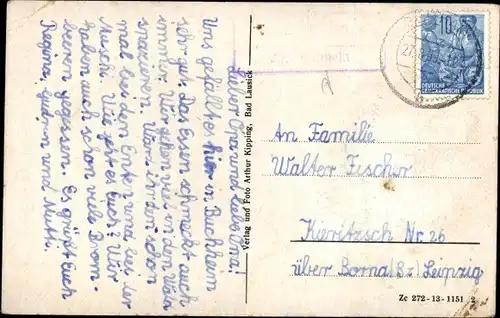 Lieber Opa und liebe Oma!
Uns gefällt es hier in Buchheim
sehr gut. Das Essen schmeckt auch
immer. Wir gehen viel in den Wald
spazieren. Wart ihr denn schon
mal bei den Enten und bei der
Muschi. Wie geht es Euch? Wir
haben auch schon viele Brom-
beeren gegessen. Es grüßt Euch
Regina, Gudrun und Mutti.
Verlag und Foto Arthur Kipping, Bad Lausick
10
DEUTSCHE
DEMOKRATISCHE REPUBLIK
An Familie
Walter Fischer
Kieritzsch Nr. 26
über Borna (Bz) Leipzig
Zc 272-13-1151 2